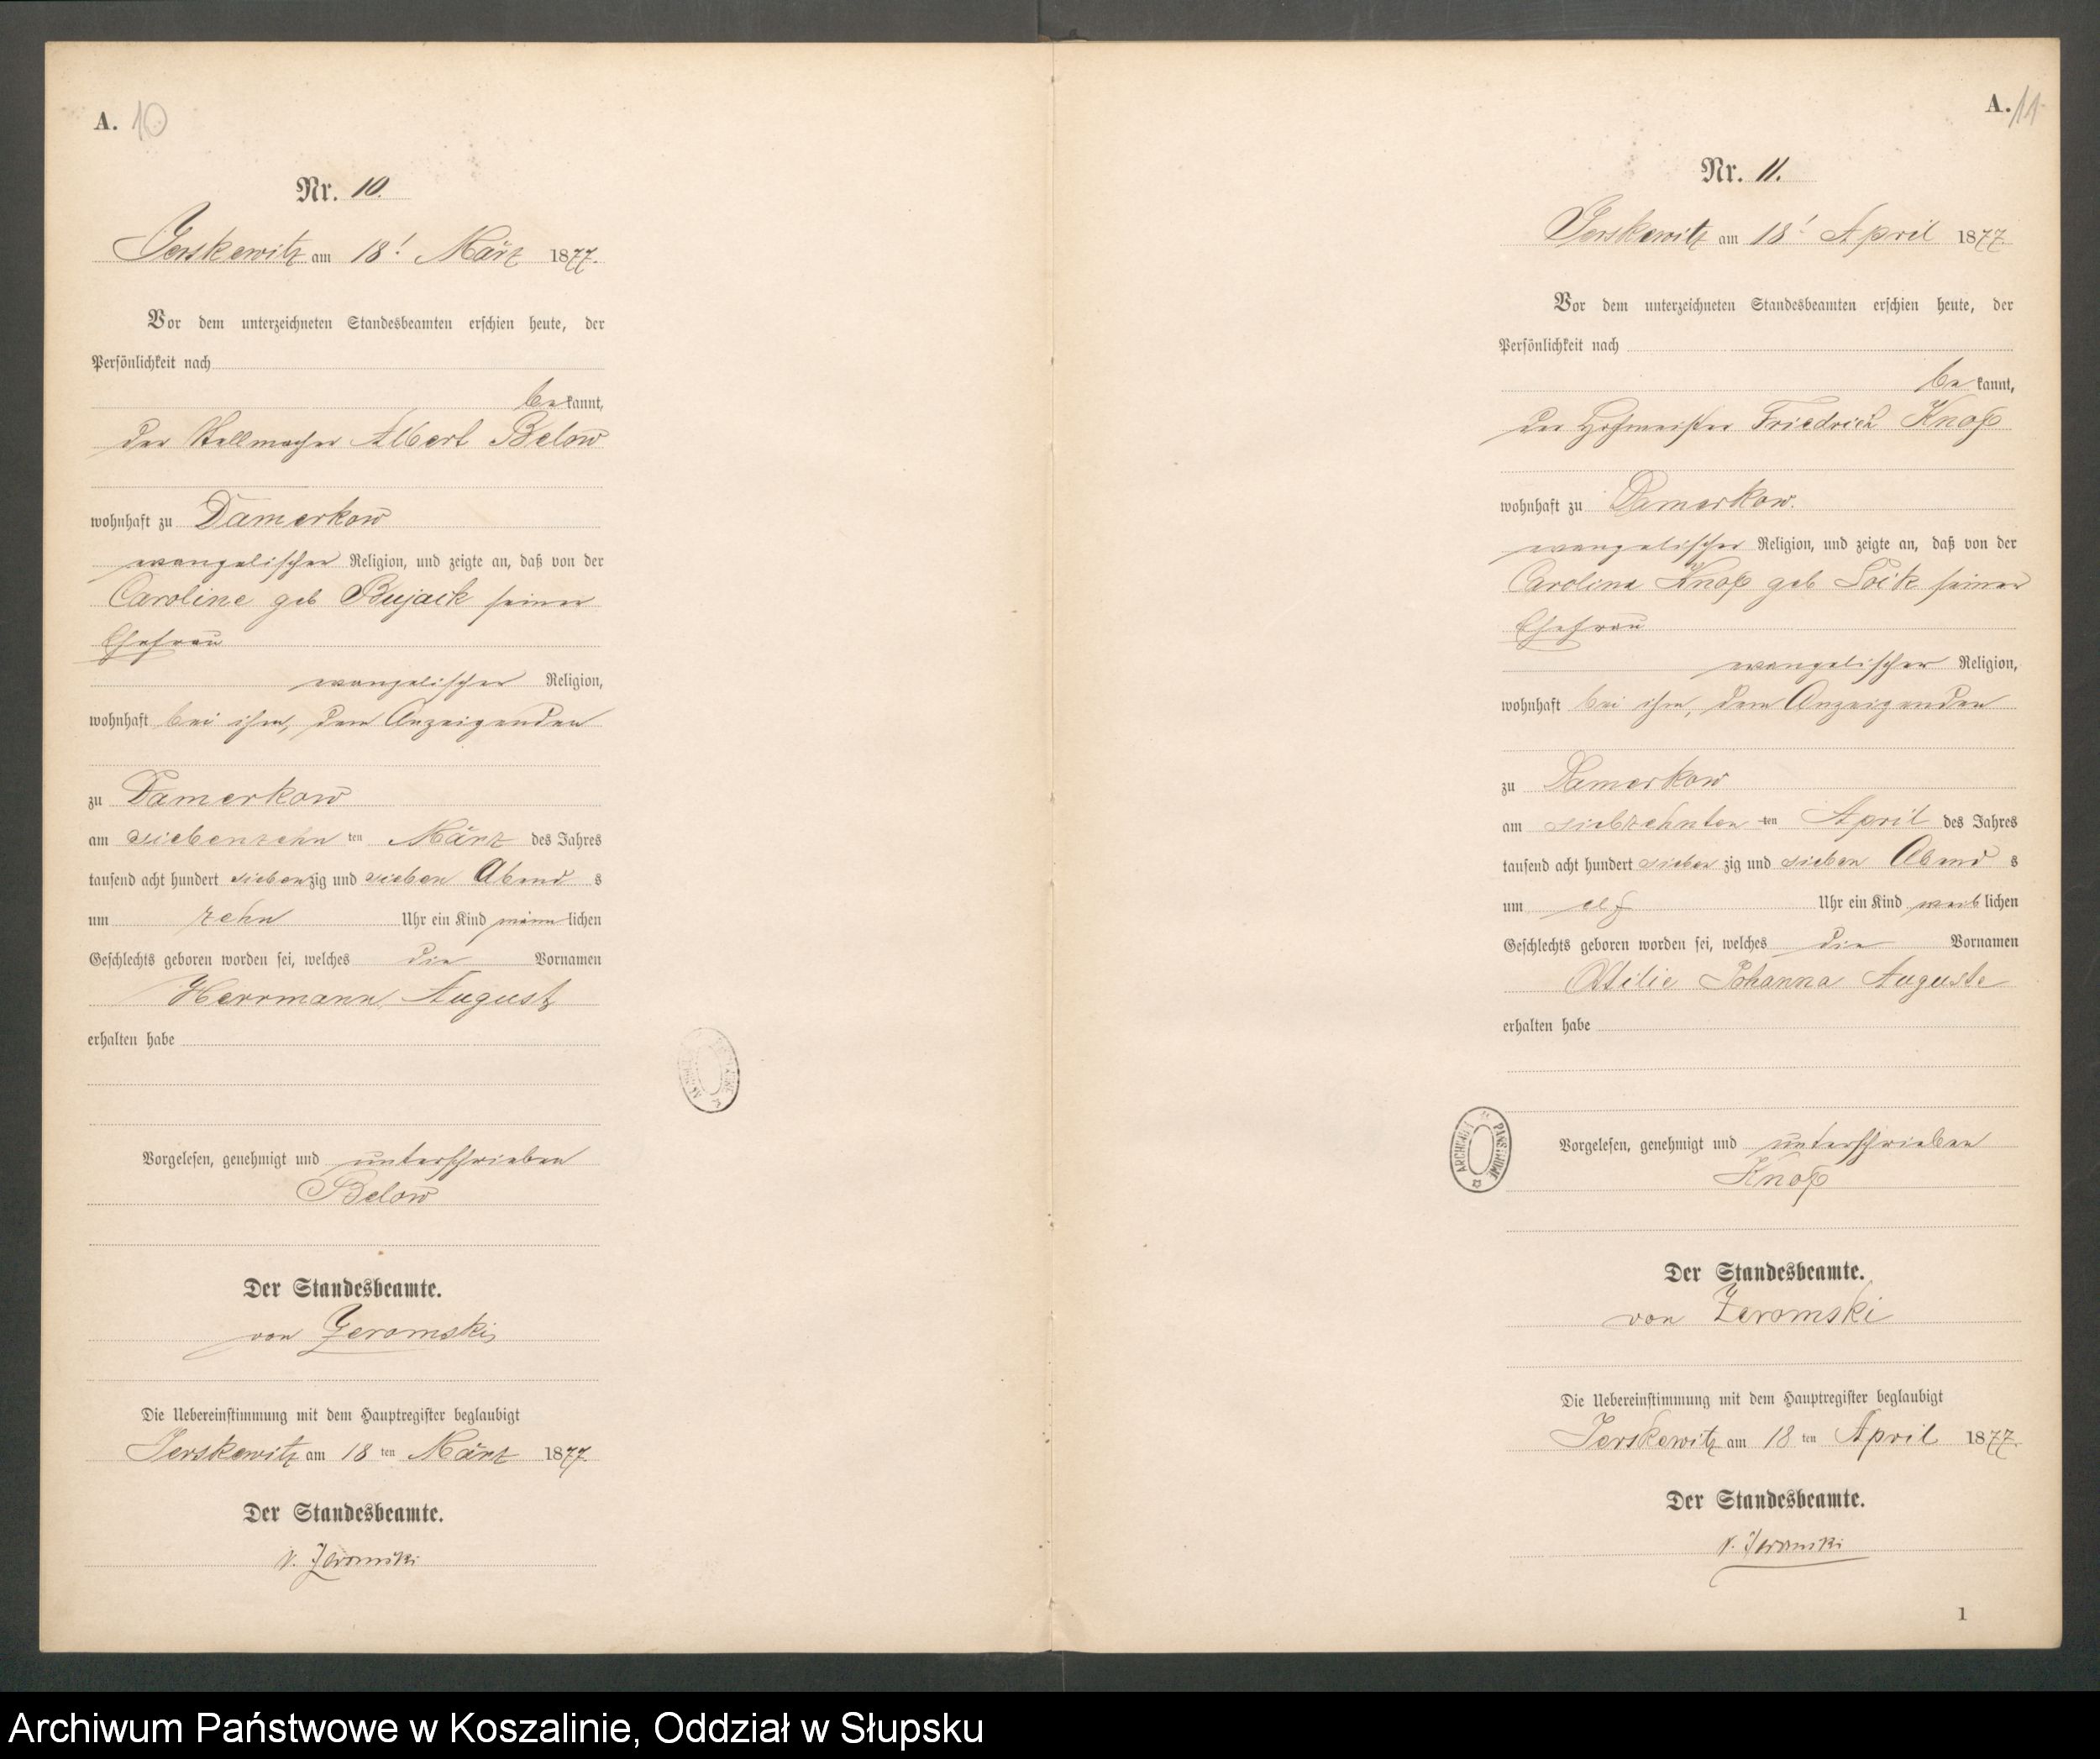 A. 10
Nr. 10.
Jerskewitz am 18! März 1877.
Vor dem unterzeichneten Standesbeamten erschien heute, der
Persönlichkeit nach
bekannt,
der Stellmacher Albert Below
wohnhaft zu Damerkow
evangelischer Religion, und zeigte an, daß von der
Caroline geb Bujack seiner
Ehefrau
evangelischer Religion,
wohnhaft bei ihm, dem Anzeigenden
zu Damerkow
am siebenzehn ten März des Jahres
tausend acht hundert siebenzig und sieben Abend s
um zehn Uhr ein Kind männlichen
Geschlechts geboren worden sei, welches die Vornamen
Herrmann August
erhalten habe
Vorgelesen, genehmigt und unterschrieben
Below
Der Standesbeamte.
von Zeromski
Die Uebereinstimmung mit dem Hauptregister beglaubigt
Jerskewitz am 18 ten März 1877.
Der Standesbeamte.
v. Zeromski
A. 11
Nr. 11.
Jerskewitz am 18! April 1877
Vor dem unterzeichneten Standesbeamten erschien heute, der
Persönlichkeit nach
bekannt,
der Hofmeister Friedrich Knop
wohnhaft zu Damerkow.
evangelischer Religion, und zeigte an, daß von der
Caroline Knop geb seiner
Ehefrau
evangelischer Religion,
wohnhaft bei ihm, dem Anzeigenden
zu Damerkow
am siebzehnten ten April des Jahres
tausend acht hundert sieben zig und sieben Abend s
um elf Uhr ein Kind weiblichen
Geschlechts geboren worden sei, welches die Vornamen
Ottilie Johanna Auguste
erhalten habe
ARCHIWUM PAŃSTWOWE
Vorgelesen, genehmigt und unterschrieben
Knop
Der Standesbeamte.
von Zeromski
Die Uebereinstimmung mit dem Hauptregister beglaubigt
Jerskewitz am 18 ten April 1877.
Der Standesbeamte.
v. Zeromski
1
Archiwum Państwowe w Koszalinie, Oddział w Słupsku